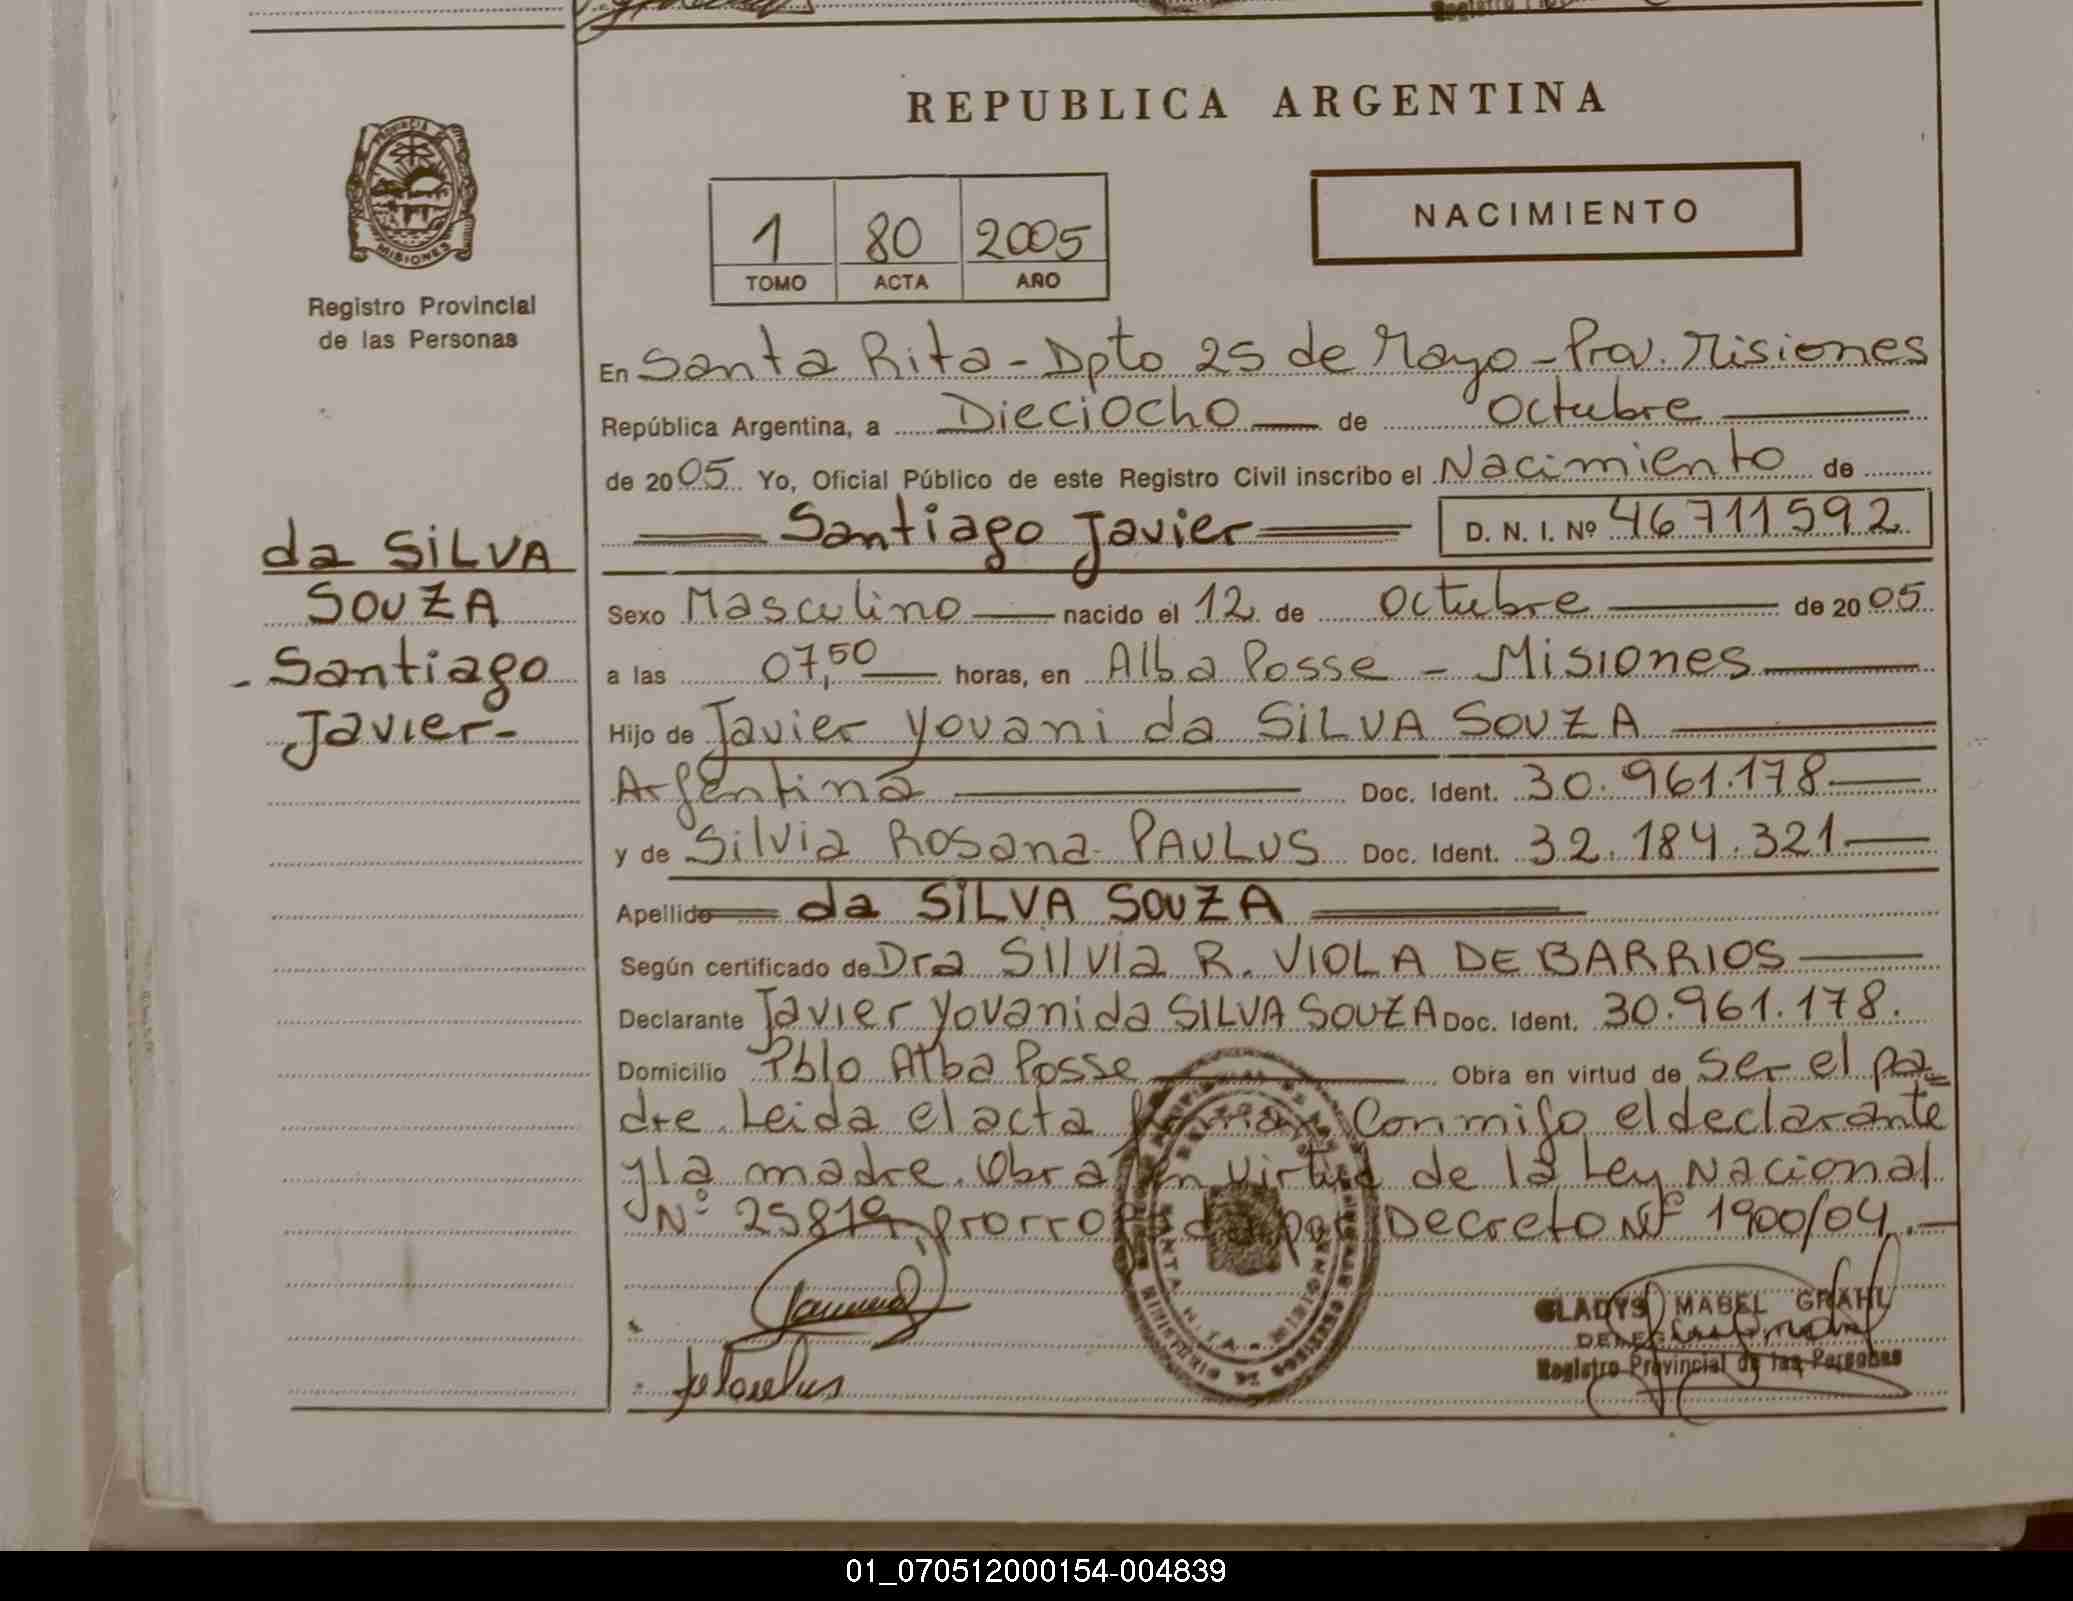 REPUBLICA ARGENTINA
PROVINCIA
MISIONES
Registro Provincial
de las Personas
1 80 2005
TOMO ACTA AÑO
NACIMIENTO
En Santa Rita - Dpto 25 de Mayo - Prov. Misiones
República Argentina, a Dieciocho de Octubre
de 2005 Yo, Oficial Público de este Registro Civil inscribo el Nacimiento de
Santiago Javier D. N. I. Nº 46711592
da SILVA
SOUZA
- Santiago
Javier -
Sexo Masculino nacido el 12 de Octubre de 2005
a las 07,50 horas, en Alba Posse - Misiones
Hijo de Javier Yovani da SILVA SOUZA
Argentina Doc. Ident. 30.961.178
y de Silvia Rosana PAULUS Doc. Ident. 32.184.321
Apellido da SILVA SOUZA
Según certificado de Dra Silvia R. VIOLA DE BARRIOS
Declarante Javier Yovani da SILVA SOUZA Doc. Ident. 30.961.178.
Domicilio Pblo Alba Posse Obra en virtud de ser el pa=
dre. Leida el acta firman conmigo el declarante
y la madre. Obra en virtud de la Ley Nacional
Nº 25819 prorrogada por Decreto Nº 1900/04.-
GLADYS MABEL GRAHL
Registro Provincial de las Personas
01_070512000154-004839